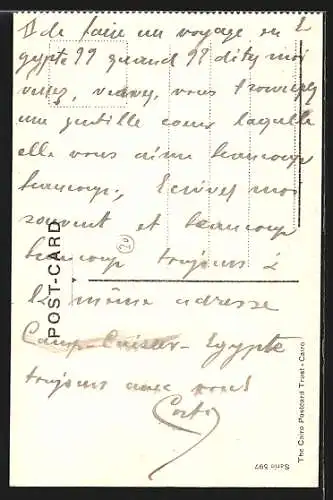 de faire un voyage en E
gypte ?? quand ?? dites moi
venez, venez, vous trouverez
une gentille coeur laquelle
elle vous aime beaucoup
beaucoup; Ecrivez moi
souvent et beaucoup
beaucoup toujours à
la même adresse
Camp-Caisar-Egypte
toujours avec vous
POST-CARD
The Cairo Postcard Trust - Cairo
Serie 597